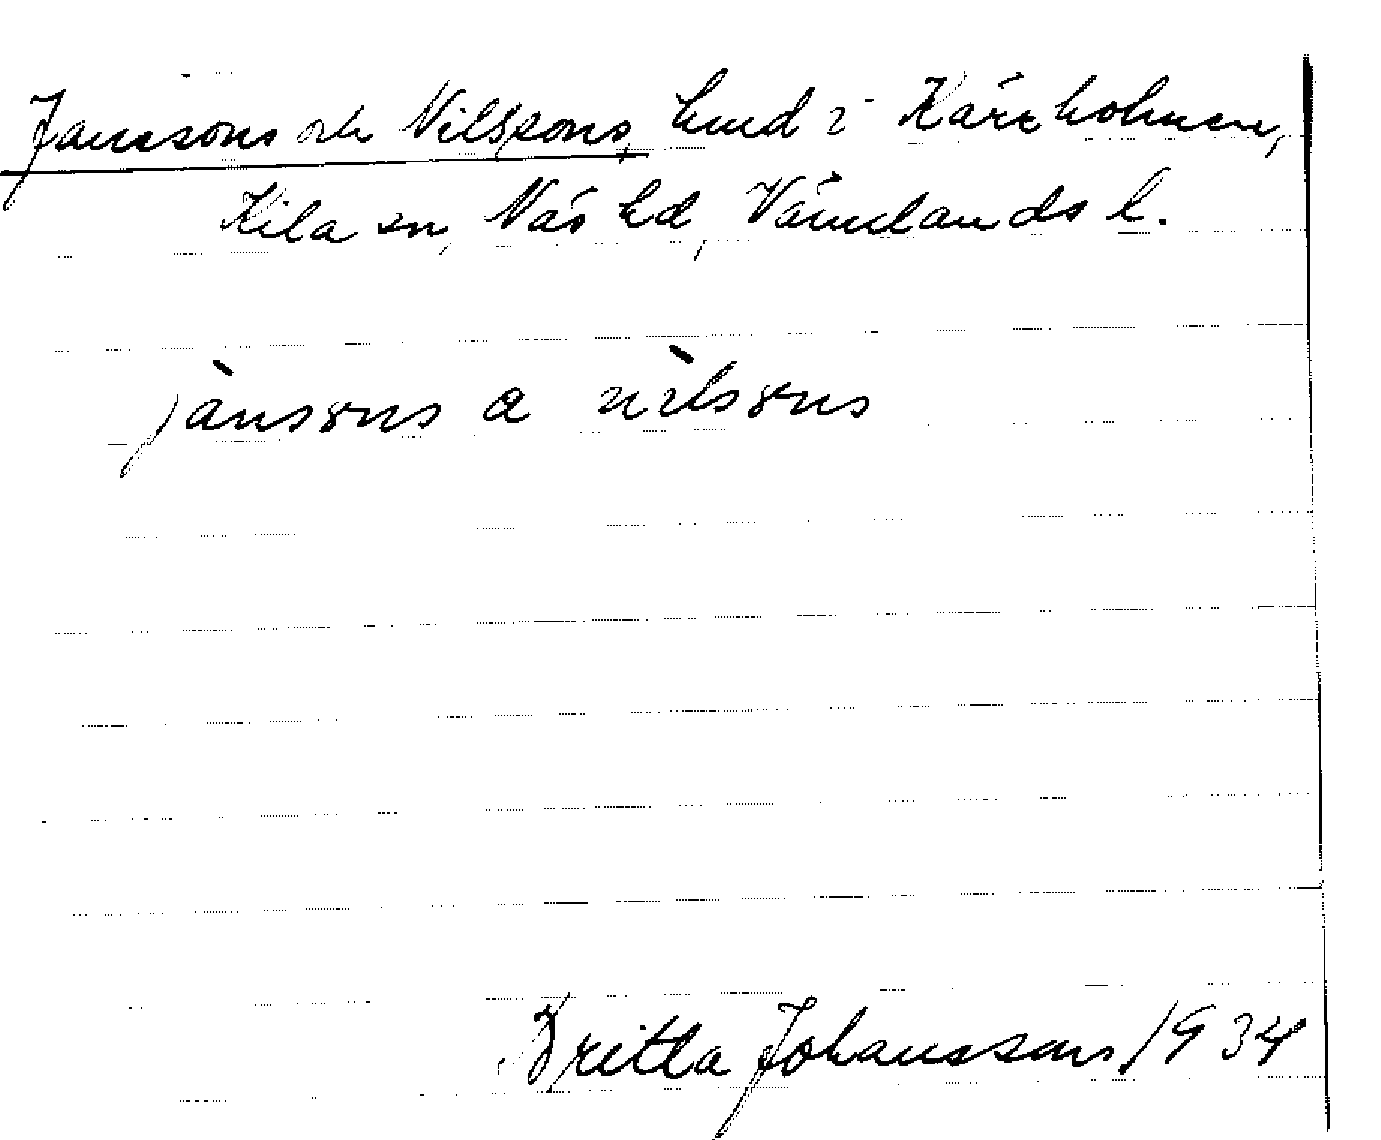 Janssons och Nilssons, hmd i Kärrholmen,
Kila sn, Näs hd, Värmlands l.
jànsons a nìlsons
Britta Johansson 1934